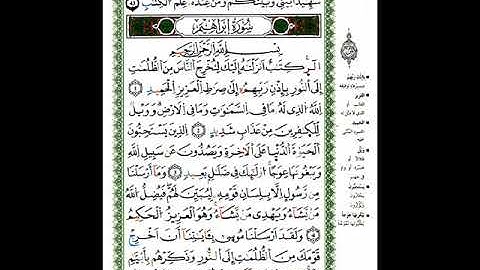 شَهِيدًۢا بَيْنِي وَبَيْنَكُمْ وَمَنْ عِندَهُۥ عِلْمُ ٱلْكِتَٰبِ ٤٣
سُورَةُ إِبْرَاهِيمَ
بِسْمِ ٱللَّهِ ٱلرَّحْمَٰنِ ٱلرَّحِيمِ
الٓر كِتَٰبٌ أَنزَلْنَٰهُ إِلَيْكَ لِتُخْرِجَ ٱلنَّاسَ مِنَ ٱلظُّلُمَٰتِ
إِلَى ٱلنُّورِ بِإِذْنِ رَبِّهِمْ إِلَىٰ صِرَٰطِ ٱلْعَزِيزِ ٱلْحَمِيدِ ١
ٱللَّهِ ٱلَّذِي لَهُۥ مَا فِي ٱلسَّمَٰوَٰتِ وَمَا فِي ٱلْأَرْضِ وَوَيْلٌ
لِّلْكَٰفِرِينَ مِنْ عَذَابٍ شَدِيدٍ ٢ ٱلَّذِينَ يَسْتَحِبُّونَ
ٱلْحَيَوٰةَ ٱلدُّنْيَا عَلَى ٱلْءَاخِرَةِ وَيَصُدُّونَ عَن سَبِيلِ ٱللَّهِ
وَيَبْغُونَهَا عِوَجًا أُو۟لَٰٓئِكَ فِي ضَلَٰلٍۭ بَعِيدٍ ٣ وَمَآ أَرْسَلْنَا
مِن رَّسُولٍ إِلَّا بِلِسَانِ قَوْمِهِۦ لِيُبَيِّنَ لَهُمْ فَيُضِلُّ ٱللَّهُ
مَن يَشَآءُ وَيَهْدِي مَن يَشَآءُ وَهُوَ ٱلْعَزِيزُ ٱلْحَكِيمُ
٤ وَلَقَدْ أَرْسَلْنَا مُوسَىٰ بِـَٔايَٰتِنَآ أَنْ أَخْرِجْ
قَوْمَكَ مِنَ ٱلظُّلُمَٰتِ إِلَى ٱلنُّورِ وَذَكِّرْهُم بِأَيَّىٰمِ